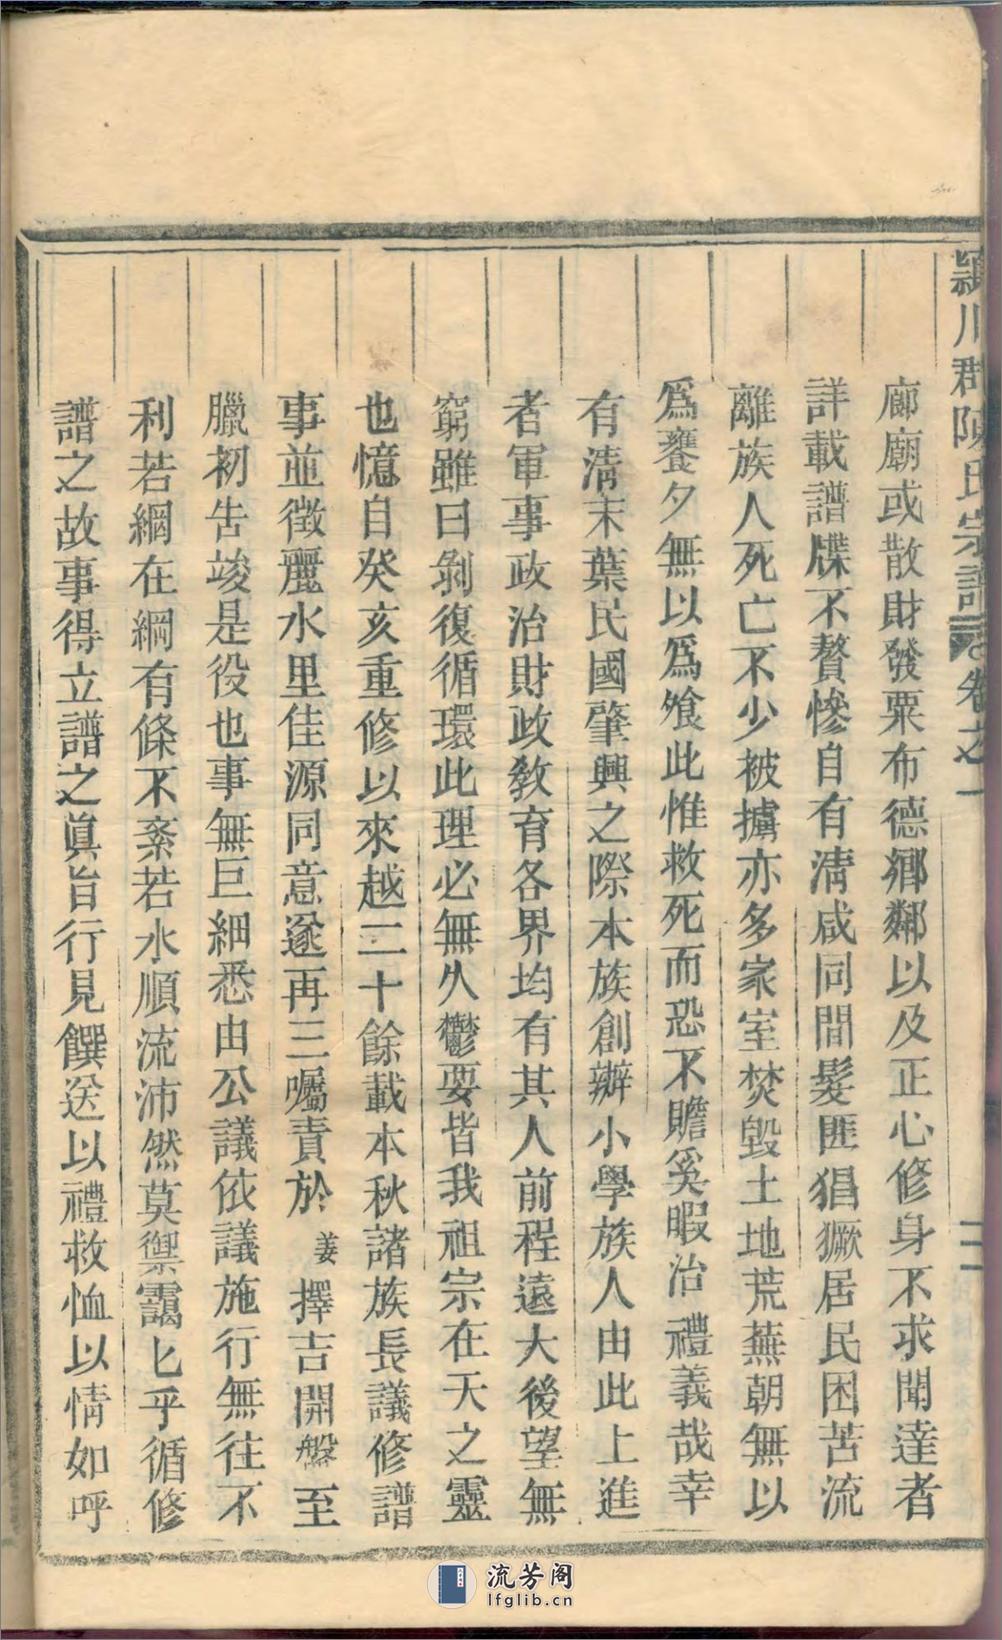 潁川郡陳氏宗譜 卷之一 二
廊廟或散財發粟布德鄉鄰以及正心修身不求聞達者
詳載譜牒不贅慘自有清咸同間髮匪猖獗居民困苦流
離族人死亡不少被擄亦多家室焚毀土地荒蕪朝無以
爲饔夕無以爲飧此惟救死而恐不贍奚暇治禮義哉幸
有清末葉民國肇興之際本族創辦小學族人由此上進
者軍事政治財政敎育各界均有其人前程遠大後望無
窮雖曰剝復循環此理必無久鬱要皆我祖宗在天之靈
也憶自癸亥重修以來越二十餘載本秋諸族長議修譜
事並徵麗水里佳源同意遂再三囑責於 姜 擇吉開盤至
臘初告竣是役也事無巨細悉由公議依議施行無往不
利若網在綱有條不紊若水順流沛然莫禦靄匕乎循修
譜之故事得立譜之眞旨行見饌送以禮救恤以情如呼
流芳阁
lfglib.cn